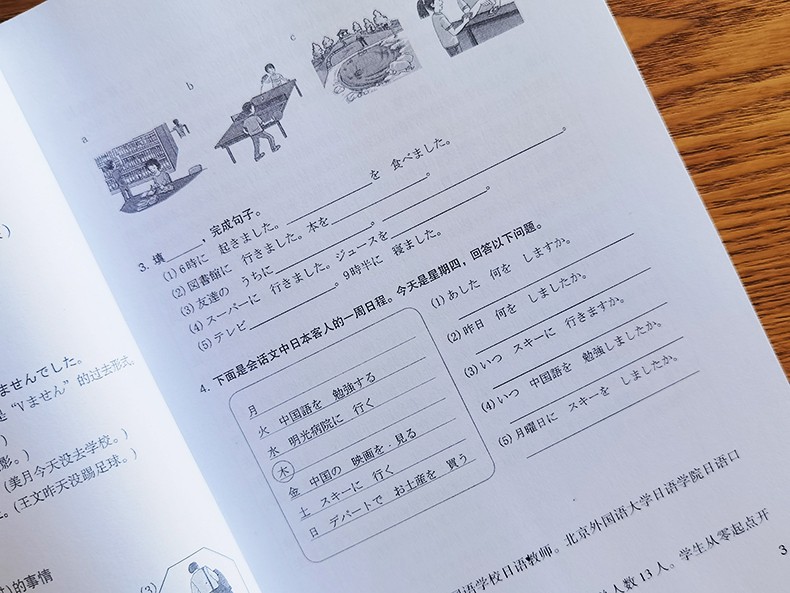 a
b
c
3. 填______，完成句子。
(1) 6時に 起きました。______を 食べました。
(2) 図書館に 行きました。本を______。
(3) 友達の うちに______。______。
(4) スーパーに 行きました。ジュースを______。
(5) テレビ______。9時半に 寝ました。
4. 下面是会话文中日本客人的一周日程。今天是星期四，回答以下问题。
月
火 中国語を 勉強する
水 明光病院に 行く
木
金 中国の 映画を 見る
土 スキーに 行く
日 デパートで お土産を 買う
(1) あした 何を しますか。
(2) 昨日 何を しましたか。
(3) いつ スキーに 行きますか。
(4) いつ 中国語を 勉強しましたか。
(5) 月曜日に スキーを しましたか。
ませんでした。
"Vません" 的过去形式
影。)
(美月今天没去学校。)
(王文昨天没踢足球。)
)的事情
(3)
语学校日语教师。北京外国语大学日语学院日语口
人数 13 人。学生从零起点开
3